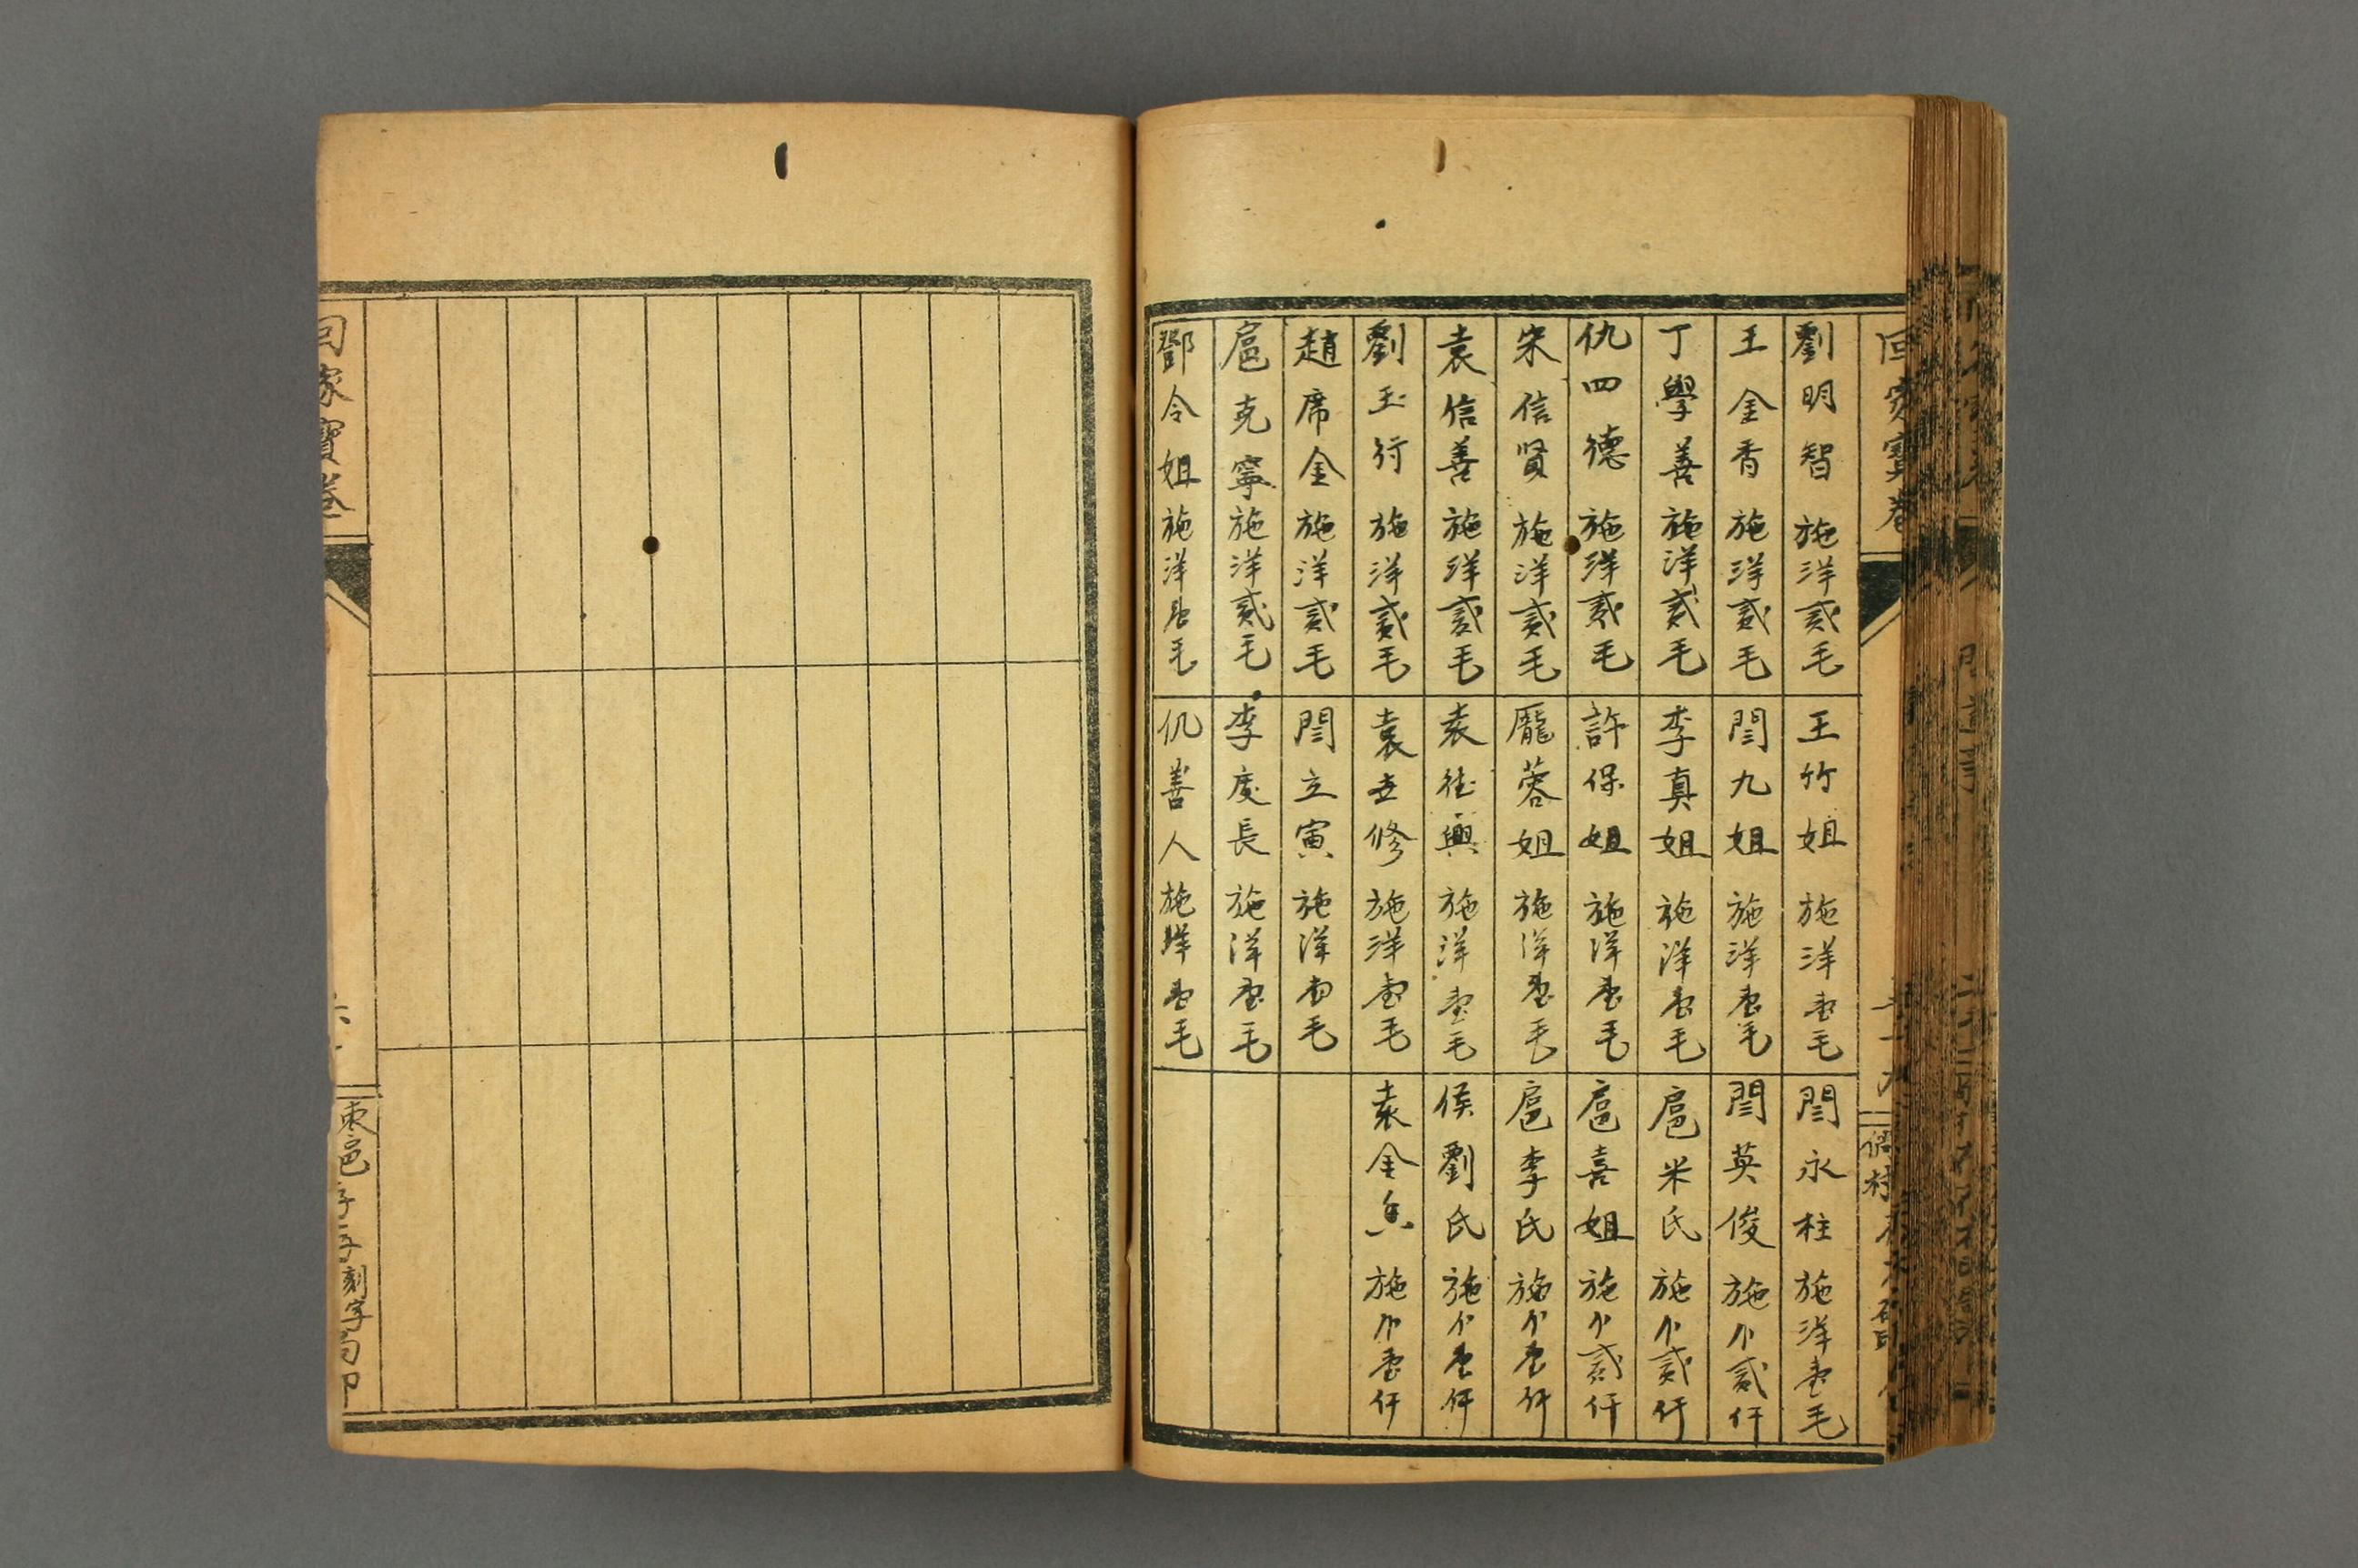 劉明智施洋貳毛
王竹姐施洋壹毛
閆永柱施洋壹毛
王金香施洋貳毛
閆九姐施洋壹毛
閆英俊施小貳仟
丁學善施洋貳毛
李真姐施洋壹毛
扈米氏施小貳仟
仇四德施洋貳毛
許保姐施洋壹毛
扈喜姐施小貳仟
宋信賢施洋貳毛
龎蓉姐施洋壹毛
扈李氏施小壹仟
袁信善施洋貳毛
袁往興施洋壹毛
侯劉氏施小壹仟
劉玉行施洋貳毛
袁世修施洋壹毛
袁金魚施小壹仟
趙席金施洋貳毛
閆立寅施洋壹毛
扈克寧施洋貳毛
李度長施洋壹毛
鄧令姐施洋壹毛
仉善人施洋壹毛
回家寶卷
回家寶卷
棗邑
刻字局印